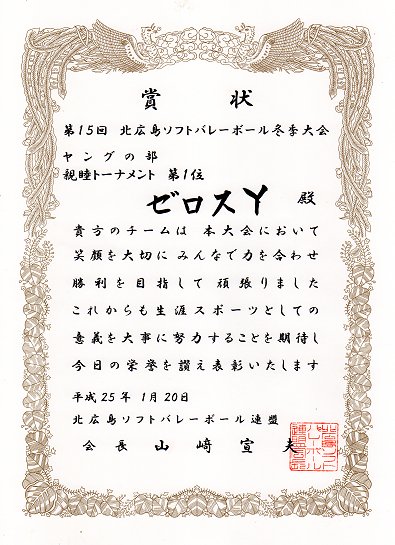 賞状
第15回 北広島ソフトバレーボール冬季大会
ヤングの部
親睦トーナメント 第1位
ゼロスY 殿
貴方のチームは 本大会において
笑顔を大切に みんなで力を合わせ
勝利を目指して 頑張りました
これからも生涯スポーツとしての
意義を大事に努力することを期待し
今日の栄誉を讃え表彰いたします
平成25年 1月20日
北広島ソフトバレーボール連盟
会長 山﨑宣夫